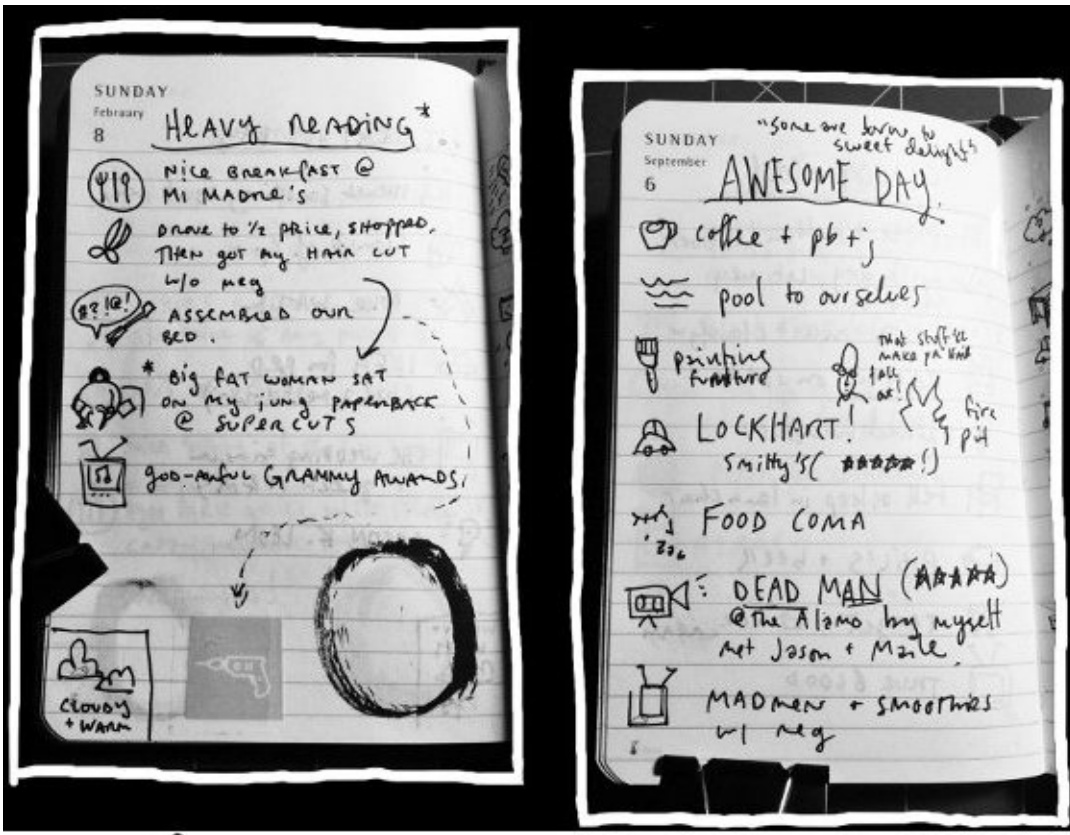 SUNDAY
February
8
HEAVY READING*
NICE BREAKFAST @
MI MADRE'S
DROVE TO 1/2 PRICE, SHOPPED,
THEN GOT MY HAIR CUT
W/O MEG
#?!@!
ASSEMBLED OUR
BED.
* BIG FAT WOMAN SAT
ON MY JUNG PAPERBACK
@ SUPERCUTS
GOD-AWFUL GRAMMY AWARDS.
CLOUDY
+ WARM
SUNDAY
September
6
"some are born to
sweet delight"
AWESOME DAY.
coffee + pb + j
pool to ourselves
painting
furniture
THAT STUFF'LL
MAKE YA HAIR
fall
out!
LOCKHART!
fire
pit
Smitty's (★★★★★!)
FOOD COMA
DEAD MAN (★★★★★)
@the Alamo by myself
met Jason + Marle.
MADMEN + SMOOTHIES
w/ meg